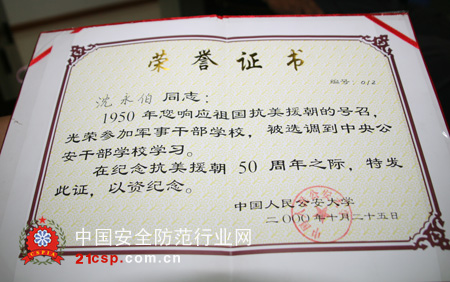 荣誉证书
编号：012
沈永伯 同志：
1950年您响应祖国抗美援朝的号召，
光荣参加军事干部学校，被选调到中央公
安干部学校学习。
在纪念抗美援朝50周年之际，特发
此证，以资纪念。
中国人民公安大学
二000年十月二十五日
CSPIA
中国安全防范行业网
21csp.com.cn